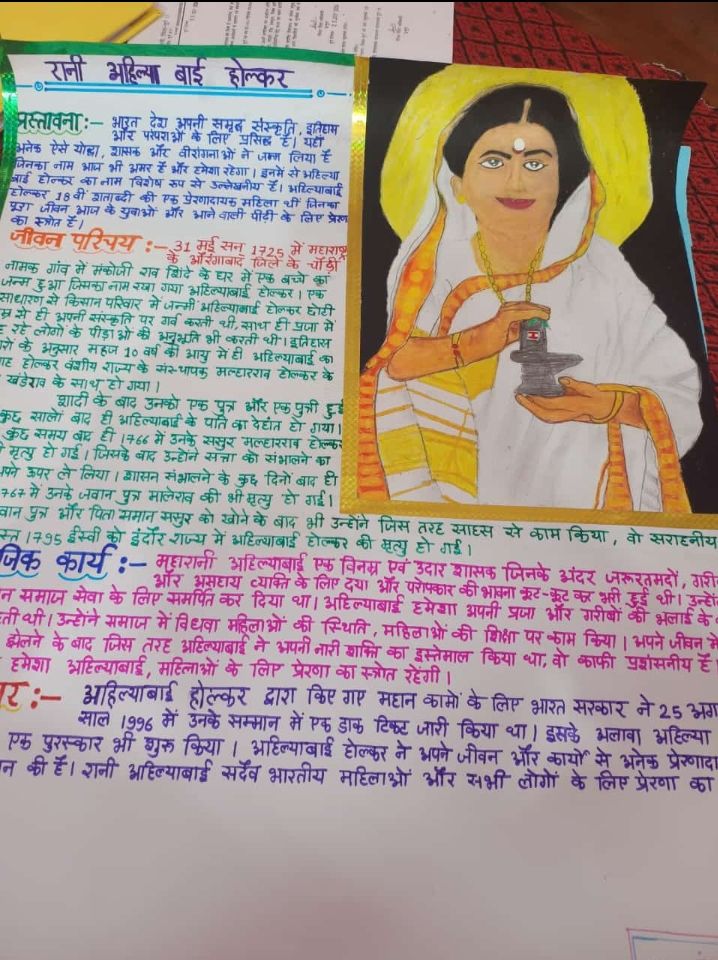 रानी अहिल्या बाई होल्कर
प्रस्तावना :- भारत देश अपनी समृद्ध संस्कृति, इतिहास
और परंपराओं के लिए प्रसिद्ध है। यहाँ
अनेक ऐसे योद्धा, शासक और वीरांगनाओं ने जन्म लिया है
जिनका नाम आज भी अमर है और हमेशा रहेगा। इनमें से अहिल्या
बाई होल्कर का नाम विशेष रूप से उल्लेखनीय है। अहिल्याबाई
होल्कर 18 वी शताब्दी की एक प्रेरणादायक महिला थीं जिनका
पूरा जीवन आज के युवाओं और आने वाली पीढ़ी के लिए
का स्त्रोत है।
जीवन परिचय :- 31 मई सन् 1725 में महाराष्ट्र
के औरंगाबाद जिले के चौंडी
नामक गांव में मंकोजी राव शिंदे के घर में एक बच्चे का
जन्म हुआ जिसका नाम रखा गया अहिल्याबाई होल्कर। एक
साधारण से किसान परिवार में जन्मी अहिल्याबाई होल्कर छोटी
म्र से ही अपनी संस्कृति पर गर्व करती थी, साथ ही प्रजा में
रहे लोगों के पीड़ाओ की अनुभूति भी करती थी। इतिहास
के अनुसार महज 10 वर्ष की आयु में ही अहिल्याबाई का
होल्कर वंशीय राज्य के संस्थापक मल्हारराव होल्कर के
खंडेराव के साथ हो गया।
शादी के बाद उनको एक पुत्र और एक पुत्री हुई
कुछ सालों बाद ही अहिल्याबाई के पति का देहांत हो गया।
कुछ समय बाद ही 1766 में उनके ससुर मल्हारराव होल्कर
मृत्यु हो गई। जिसके बाद उन्होंने सत्ता को संभालने का
पने ऊपर ले लिया। शासन संभालने के कुछ दिनों बाद ही
767 में उनके जवान पुत्र मालेराव की भी मृत्यु हो गई।
वान पुत्र और पिता समान ससुर को खोने के बाद भी उन्होंने जिस तरह साहस से काम किया, वो सराहनीय
स्त 1795 ईस्वी को इंदौर राज्य में अहिल्याबाई होल्कर की मृत्यु हो गई।
जिक कार्य :- महारानी अहिल्याबाई एक विनम्र एवं उदार शासक जिनके अंदर जरूरतमदों, गरी
और असहाय व्यक्ति के लिए दया और परोपकार की भावना कूट-कूट कर भरी हुई थी। उन्हों
न समाज सेवा के लिए समर्पित कर दिया था। अहिल्याबाई हमेशा अपनी प्रजा और गरीबों की भलाई के
ती थी। उन्होंने समाज में विधवा महिलाओं की स्थिति, महिलाओं की शिक्षा पर काम किया। अपने जीवन में
झेलने के बाद जिस तरह अहिल्याबाई ने अपनी नारी शक्ति का इस्तेमाल किया था, वो काफी प्रशंसनीय है
हमेशा अहिल्याबाई, महिलाओं के लिए प्रेरणा का स्त्रोत रहेगी।
र :- अहिल्याबाई होल्कर द्वारा किए गए महान कामों के लिए भारत सरकार ने 25 अग
साल 1996 में उनके सम्मान में एक डाक टिकट जारी किया था। इसके अलावा अहिल्या
एक पुरस्कार भी शुरू किया। अहिल्याबाई होल्कर ने अपने जीवन और कार्यों से अनेक प्रेरणादा
न की हैं। रानी अहिल्याबाई सदैव भारतीय महिलाओं और सभी लोगों के लिए प्रेरणा का